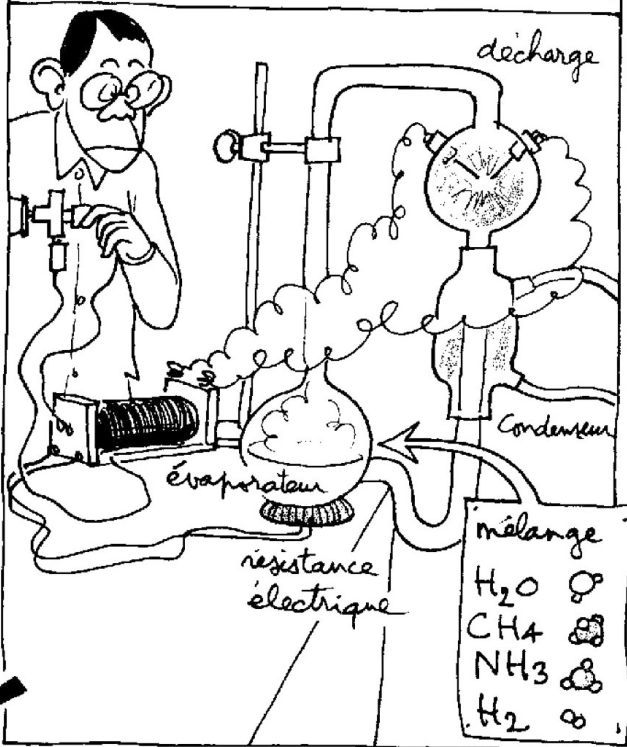 décharge
Condenseur
évaporateur
résistance
électrique
mélange
H₂O
CH4
NH3
H₂